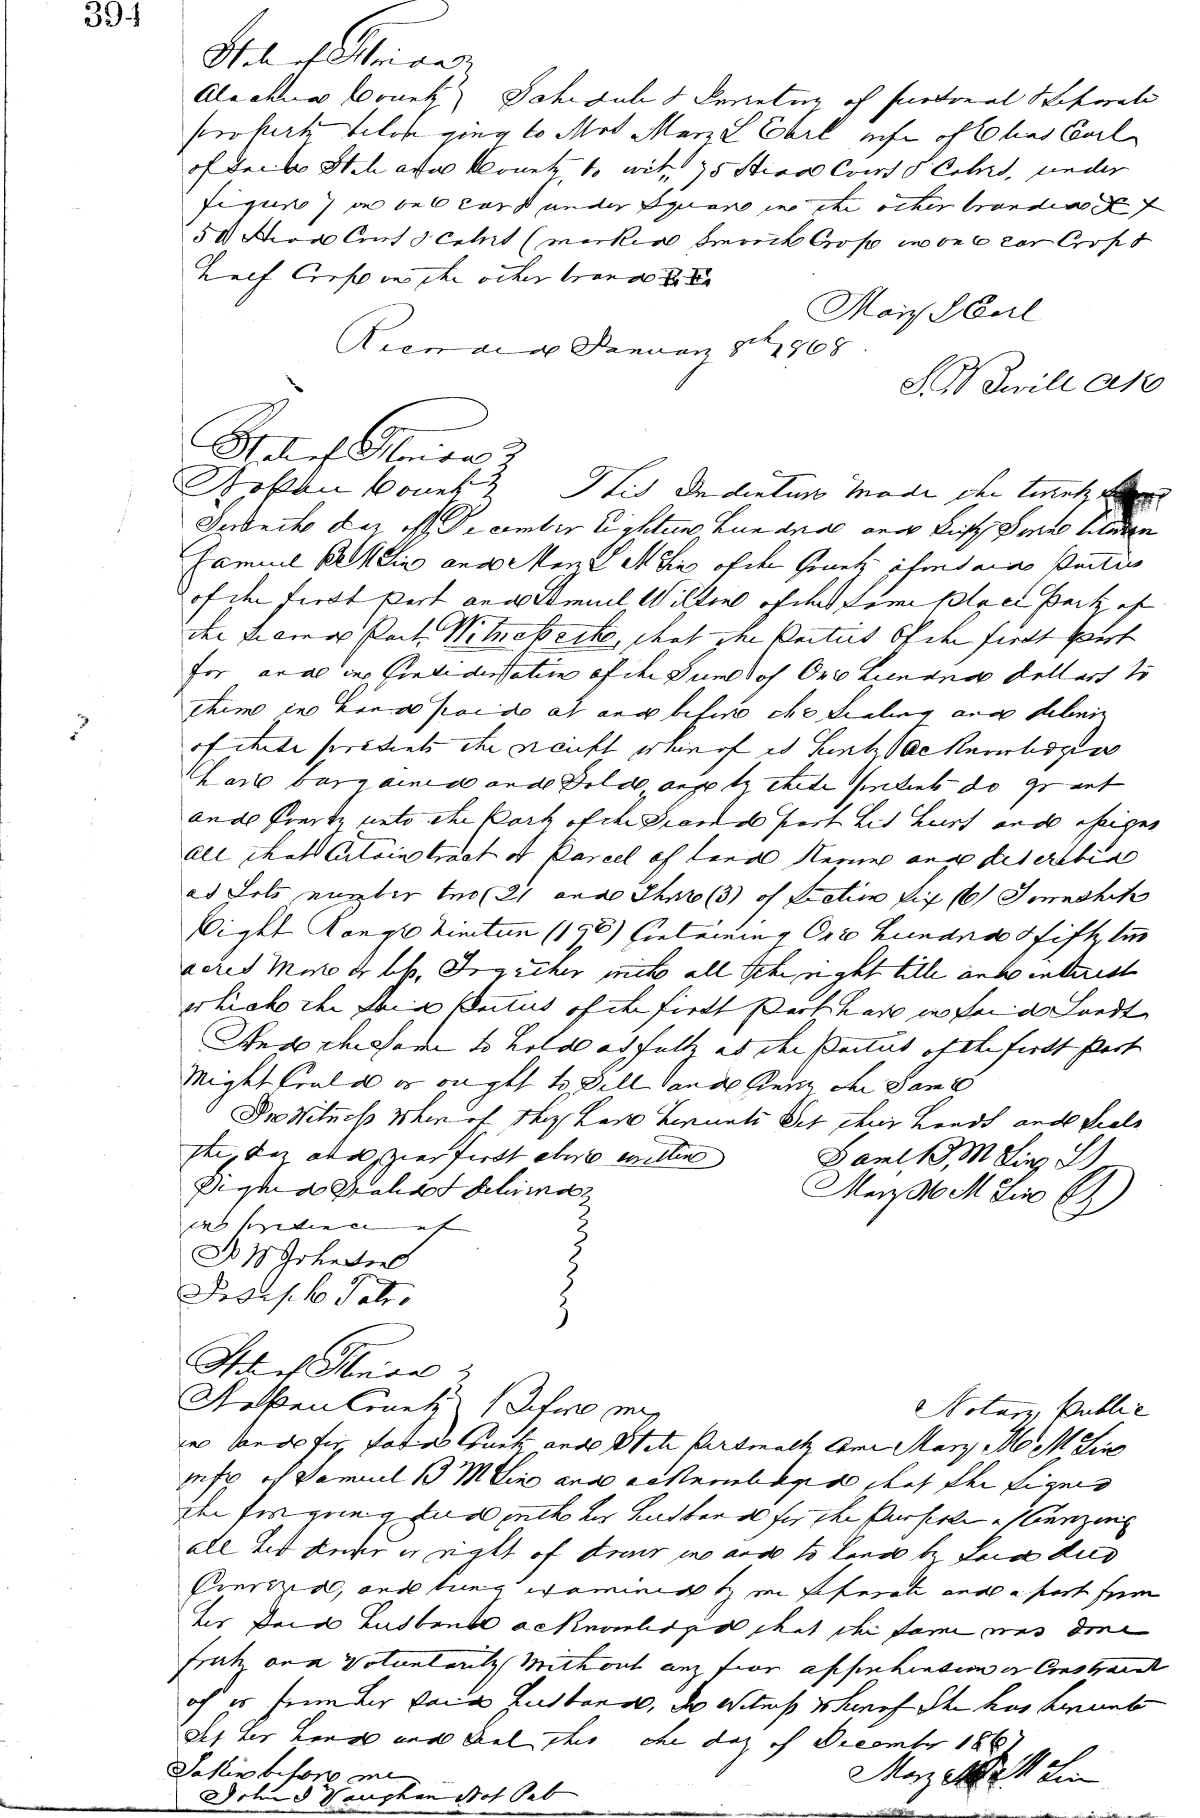 394
State of Florida
Alachua County Schedule & Inventory of personal & Seperate
property belonging to Mrs Mary L Earl wife of Elias Earl
of Said State and County, to wit, 75 Head Cows & Calves, under
figure 7 in one ear & under Square in the other branded
50 Head Cows & Calves (marked Smooth Crop in one ear Crop &
half Crop in the other brand E.E.
Mary L Earl
Recorded January 8th 1868
State of Florida
County This Indenture Made the twenty
Seventh day of December Eighteen hundred and Sixty Seven between
Samuel B McLin and Mary McLin of the County aforesaid Parties
of the first Part and Samuel Wilson of the Same place Party of
the Second Part, Witnesseth, that the Parties Of the first part
for and in Consideration of the Sum of One hundred dollars to
them in hand paid at and before the Sealing and delivery
of these presents the reciept whereof is hereby acknowledged
have bargained and Sold, and by these presents do grant
and Convey unto the Party of the Second part his heirs and assigns
all that Certain tract or Parcel of land Known and described
as Lots number two (2) and Three (3) of Section Six (6) Township
Eight Range Nineteen (19) Containing One hundred & fifty two
acres More or less, Together with all the right title and interest
which the Said Parties of the first Part have in Said Lands
And the Same to hold as fully as the Parties of the first Part
Might Could or ought to Sell and Convey the Same
In Witness Whereof they have hereunto Set their hands and Seals
the day and year first above written Saml B, McLin
Signed Sealed & delivered Mary M McLin
in presence of
Johnson
Joseph
State of Florida
County Before me Notary Public
in and for Said County and State Personally Came Mary M McLin
wife of Samuel B McLin and acknowledged that She Signed
the foregoing deed with her husband for the Purpose of Conveying
all her dower or right of dower in and to land by Said deed
Conveyed, and being examined by me Seperate and apart from
her Said husband acknowledged that the Same was done
freely and Voluntarily Without any fear apprehension or Constraint
of or from her Said husband, In Witness Whereof She has hereunto
Set her hand and Seal this the day of December 1867
Taken before me Mary M McLin
John Vaughan Not Pub